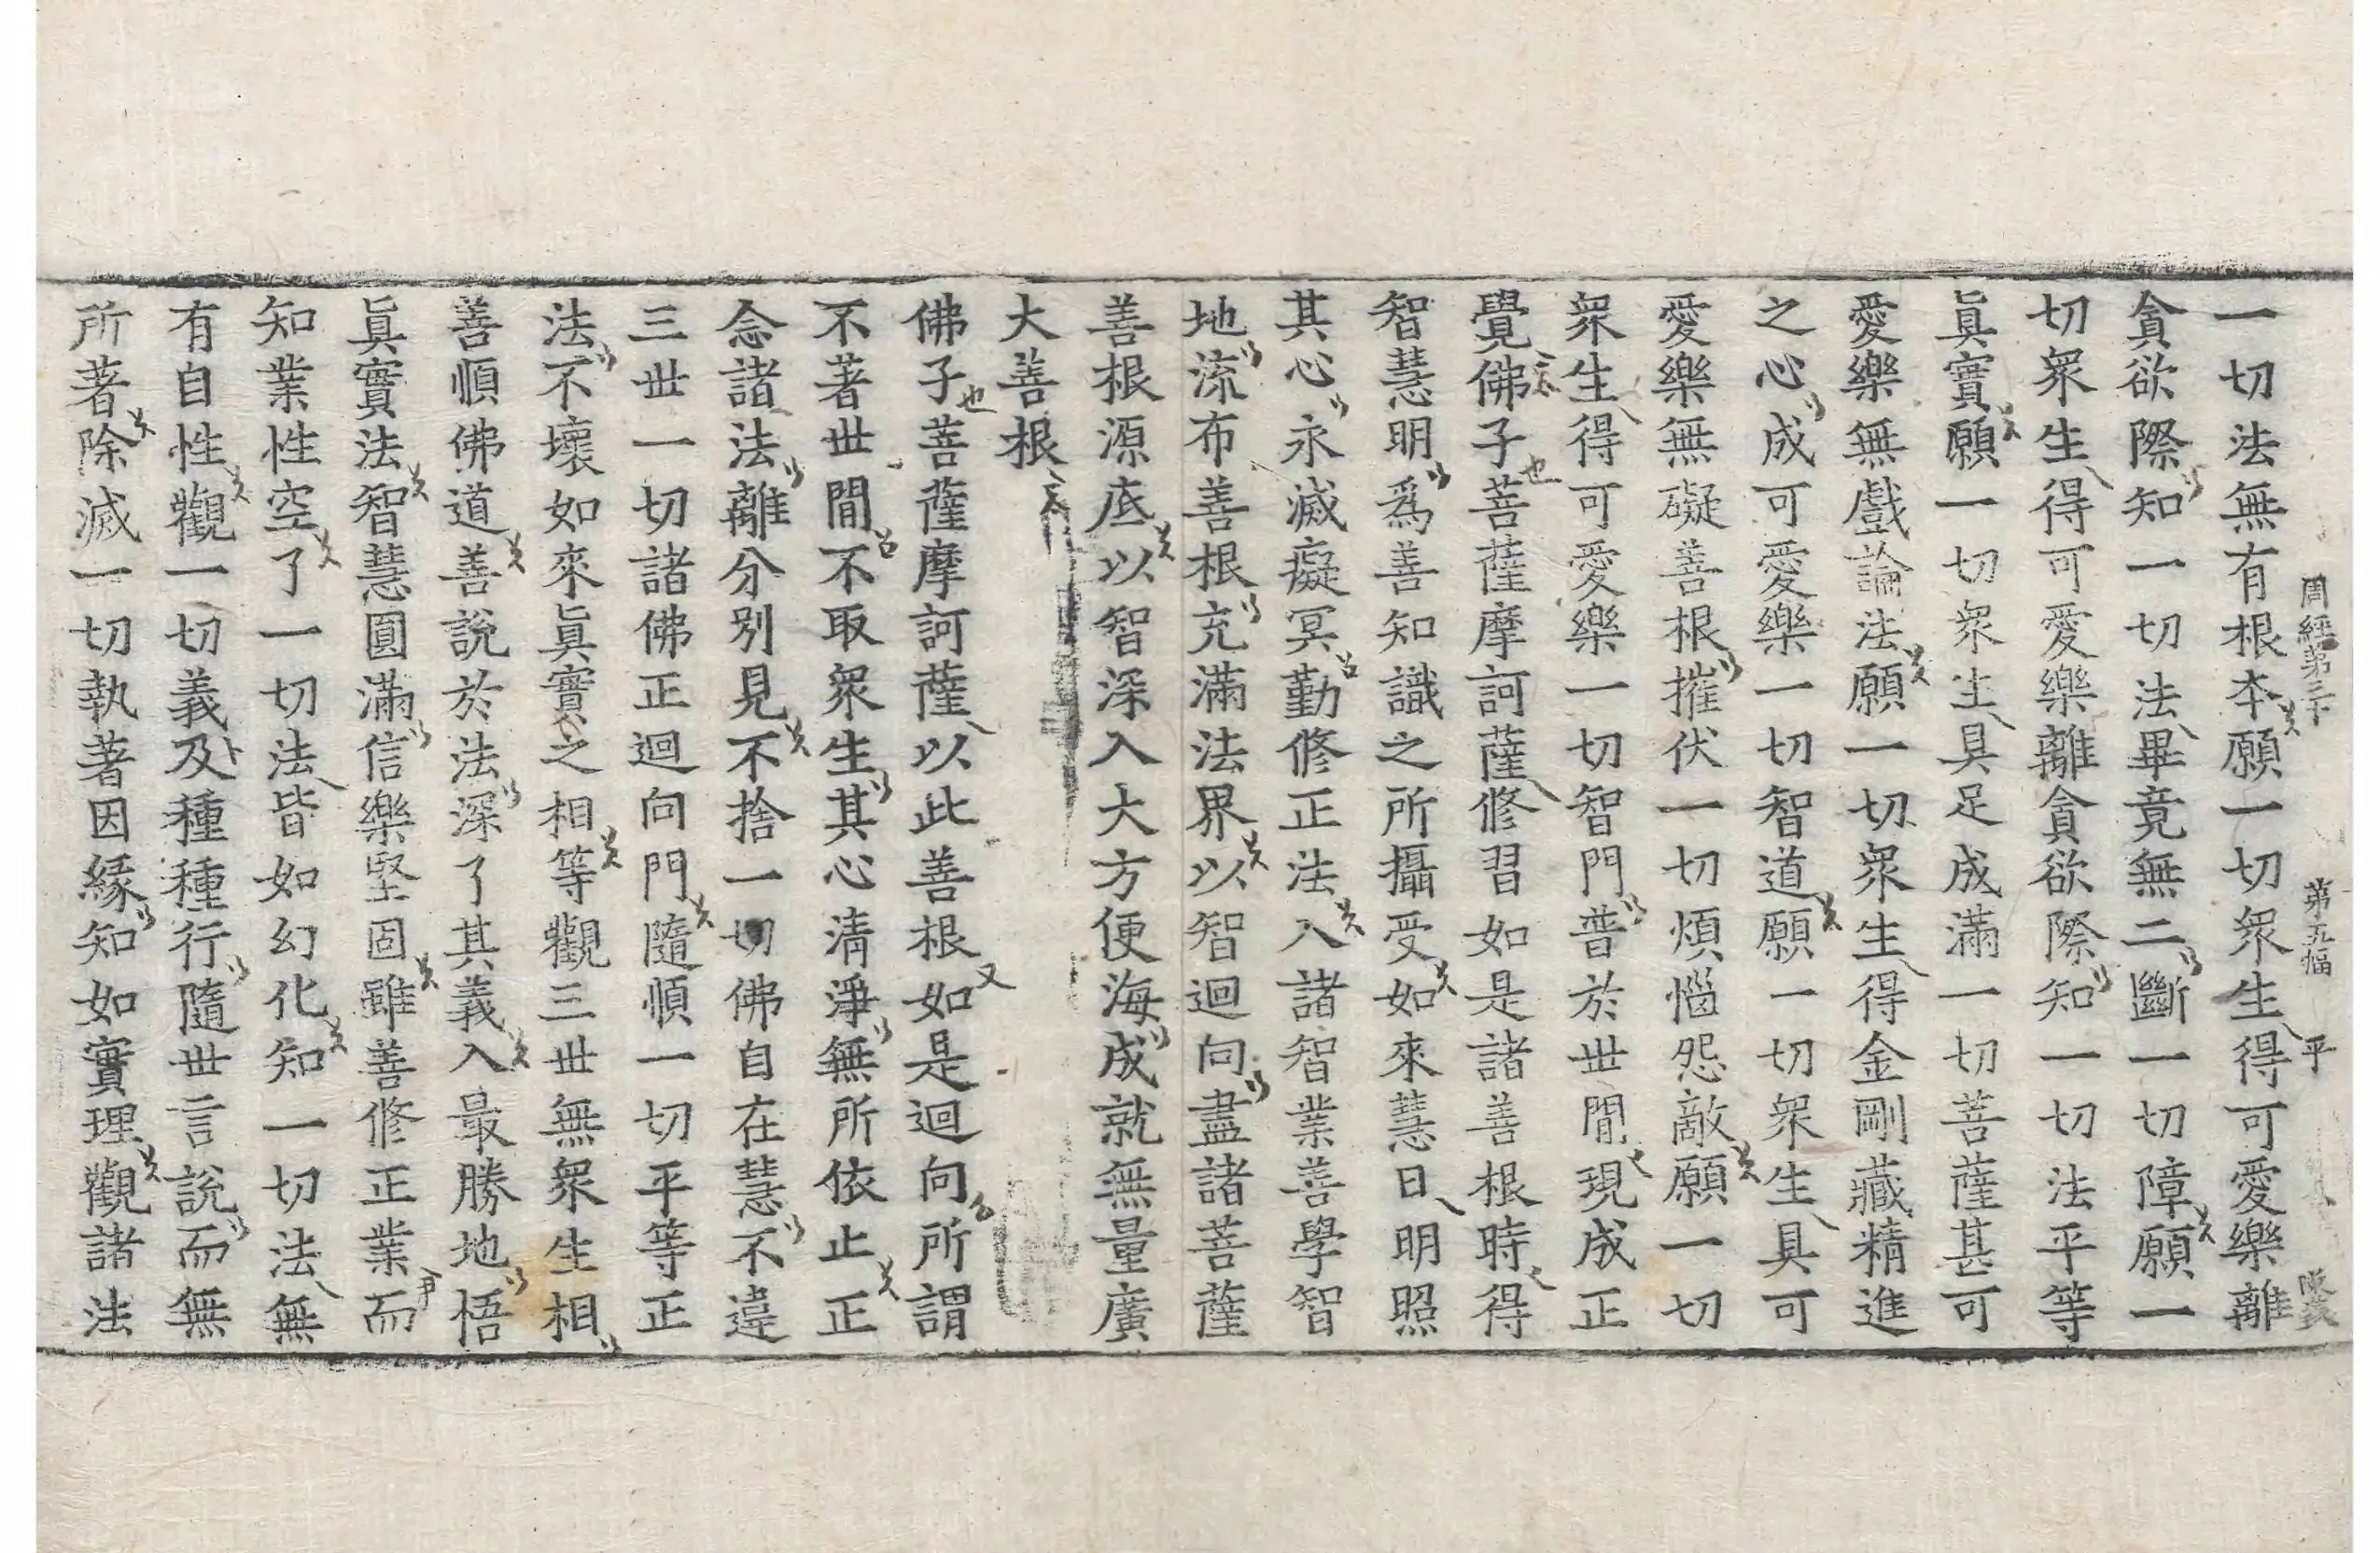 周經第三十 第五幅 平
一切法無有根本願一切衆生得可愛樂離
貪欲際知一切法畢竟無二斷一切障願一
切衆生得可愛樂離貪欲際知一切法平等
眞實願一切衆生具足成滿一切菩薩甚可
愛樂無戲論法願一切衆生得金剛藏精進
之心成可愛樂一切智道願一切衆生具可
愛樂無礙善根摧伏一切煩惱怨敵願一切
衆生得可愛樂一切智門普於世間現成正
覺佛子菩薩摩訶薩修習如是諸善根時得
智慧明爲善知識之所攝受如來慧日明照
其心永滅癡冥勤修正法入諸智業善學智
地流布善根充滿法界以智迴向盡諸菩薩
善根源底以智深入大方便海成就無量廣
大善根
佛子菩薩摩訶薩以此善根如是迴向所謂
不著世間不取衆生其心清淨無所依止正
念諸法離分別見不捨一切佛自在慧不違
三世一切諸佛正迴向門隨順一切平等正
法不壞如來眞實之相等觀三世無衆生相
善順佛道善說於法深了其義入最勝地悟
眞實法智慧圓滿信樂堅固雖善修正業而
知業性空了一切法皆如幻化知一切法無
有自性觀一切義及種種行隨世言說而無
所著除滅一切執著因緣知如實理觀諸法